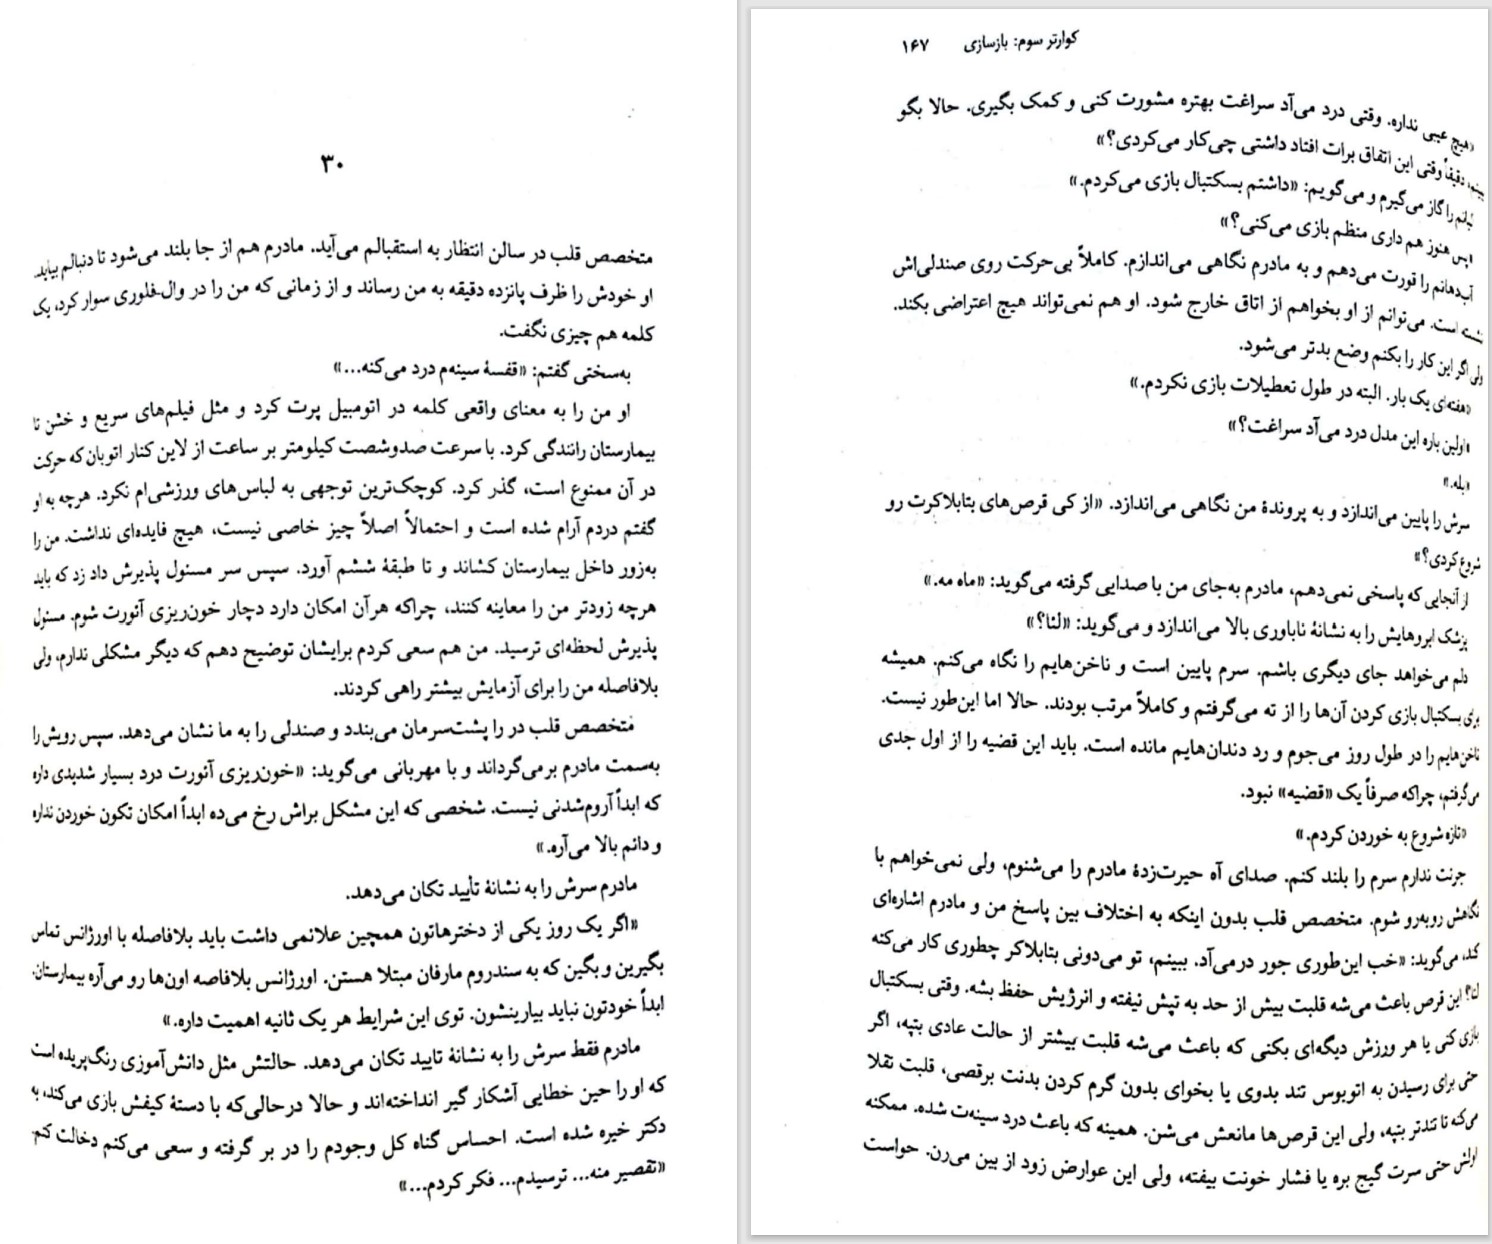 ۳۰
متخصص قلب در سالن انتظار به استقبالم می‌آید. مادرم هم از جا بلند می‌شود تا دنبالم بیاید.
او خودش را ظرف پانزده دقیقه به من رساند و از زمانی که من را در وال‌فلوری سوار کرد، یک
کلمه هم چیزی نگفت.
به‌سختی گفتم: «قفسهٔ سینه‌م درد می‌کنه...»
او من را به معنای واقعی کلمه در اتومبیل پرت کرد و مثل فیلم‌های سریع و خشن تا
بیمارستان رانندگی کرد. با سرعت صدوشصت کیلومتر بر ساعت از لاین کنار اتوبان که حرکت
در آن ممنوع است، گذر کرد. کوچک‌ترین توجهی به لباس‌های ورزشی‌ام نکرد. هرچه به او
گفتم دردم آرام شده است و احتمالاً اصلاً چیز خاصی نیست، هیچ فایده‌ای نداشت. من را
به‌زور داخل بیمارستان کشاند و تا طبقهٔ ششم آورد. سپس سر مسئول پذیرش داد زد که باید
هرچه زودتر من را معاینه کنند، چراکه هرآن امکان دارد دچار خون‌ریزی آئورت شوم. مسئول
پذیرش لحظه‌ای ترسید. من هم سعی کردم برایشان توضیح دهم که دیگر مشکلی ندارم، ولی
بلافاصله من را برای آزمایش بیشتر راهی کردند.
متخصص قلب در را پشت‌سرمان می‌بندد و صندلی را به ما نشان می‌دهد. سپس رویش را
به‌سمت مادرم برمی‌گرداند و با مهربانی می‌گوید: «خون‌ریزی آئورت درد بسیار شدیدی داره
که ابداً آروم‌شدنی نیست. شخصی که این مشکل براش رخ می‌ده ابداً امکان تکون خوردن نداره
و دائم بالا می‌آره.»
مادرم سرش را به نشانهٔ تأیید تکان می‌دهد.
«اگر یک روز یکی از دخترهاتون همچین علائمی داشت باید بلافاصله با اورژانس تماس
بگیرین و بگین که به سندروم مارفان مبتلا هستن. اورژانس بلافاصه اون‌ها رو می‌آره بیمارستان.
ابداً خودتون نباید بیارینشون. توی این شرایط هر یک ثانیه اهمیت داره.»
مادرم فقط سرش را به نشانهٔ تایید تکان می‌دهد. حالتش مثل دانش‌آموزی رنگ‌پریده است
که او را حین خطایی آشکار گیر انداخته‌اند و حالا درحالی‌که با دستهٔ کیفش بازی می‌کند، به
دکتر خیره شده است. احساس گناه کل وجودم را در بر گرفته و سعی می‌کنم دخالت کنم.
«تقصیر منه... ترسیدم... فکر کردم...»
کوارتر سوم: بازسازی ۱۶۷
«هیچ عیبی نداره. وقتی درد می‌آد سراغت بهتره مشورت کنی و کمک بگیری. حالا بگو
ببینم، دقیقاً وقتی این اتفاق برات افتاد داشتی چی‌کار می‌کردی؟»
لبانم را گاز می‌گیرم و می‌گویم: «داشتم بسکتبال بازی می‌کردم.»
«پس هنوز هم داری منظم بازی می‌کنی؟»
آب‌دهانم را قورت می‌دهم و به مادرم نگاهی می‌اندازم. کاملاً بی‌حرکت روی صندلی‌اش
نشسته است. می‌توانم از او بخواهم از اتاق خارج شود. او هم نمی‌تواند هیچ اعتراضی بکند.
ولی اگر این کار را بکنم وضع بدتر می‌شود.
«هفته‌ای یک بار. البته در طول تعطیلات بازی نکردم.»
«اولین باره این مدل درد می‌آد سراغت؟»
«بله.»
سرش را پایین می‌اندازد و به پروندهٔ من نگاهی می‌اندازد. «از کی قرص‌های بتابلاکرت رو
شروع کردی؟»
از آنجایی که پاسخی نمی‌دهم، مادرم به‌جای من با صدایی گرفته می‌گوید: «ماه مه.»
پزشک ابروهایش را به نشانهٔ ناباوری بالا می‌اندازد و می‌گوید: «لئا؟»
دلم می‌خواهد جای دیگری باشم. سرم پایین است و ناخن‌هایم را نگاه می‌کنم. همیشه
برای بسکتبال بازی کردن آن‌ها را از ته می‌گرفتم و کاملاً مرتب بودند. حالا اما این‌طور نیست.
ناخن‌هایم را در طول روز می‌جوم و رد دندان‌هایم مانده است. باید این قضیه را از اول جدی
می‌گرفتم، چراکه صرفاً یک «قضیه» نبود.
«تازه شروع به خوردن کردم.»
جرئت ندارم سرم را بلند کنم. صدای آه حیرت‌زدهٔ مادرم را می‌شنوم، ولی نمی‌خواهم با
نگاهش روبه‌رو شوم. متخصص قلب بدون اینکه به اختلاف بین پاسخ من و مادرم اشاره‌ای
کند، می‌گوید: «خب این‌طوری جور درمی‌آد. ببینم، تو می‌دونی بتابلاکر چطوری کار می‌کنه
لئا؟ این قرص باعث می‌شه قلبت بیش از حد به تپش نیفته و انرژیش حفظ بشه. وقتی بسکتبال
بازی کنی یا هر ورزش دیگه‌ای بکنی که باعث می‌شه قلبت بیشتر از حالت عادی بتپه، اگر
حتی برای رسیدن به اتوبوس تند بدوی یا بخوای بدون گرم کردن بدنت برقصی، قلبت تقلا
می‌کنه تا تندتر بتپه، ولی این قرص‌ها مانعش می‌شن. همینه که باعث درد سینه‌ت شده. ممکنه
اولش حتی سرت گیج بره یا فشار خونت بیفته، ولی این عوارض زود از بین می‌رن. حواست